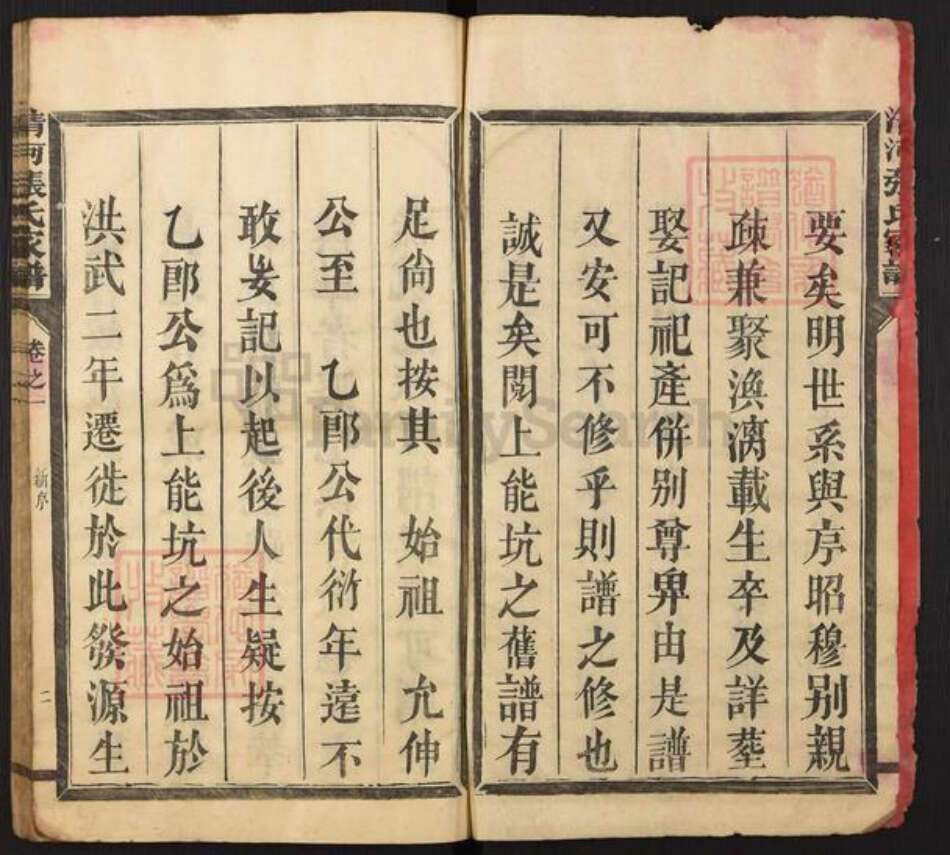 清河張氏家譜
要矣明世系與序昭穆别親
疎兼聚渙漓載生卒及詳塟
娶記祀產併别尊卑由是譜
又安可不修乎則譜之修也
誠是矣閱上能坑之舊譜有
足尙也按其 始祖 允伸
公至 乙郎公代衍年遠不
敢妄記以起後人生疑按
乙郎公爲上能坑之始祖於
洪武二年遷徙於此發源生
清河張氏家譜 卷之一 新序 二
FamilySearch